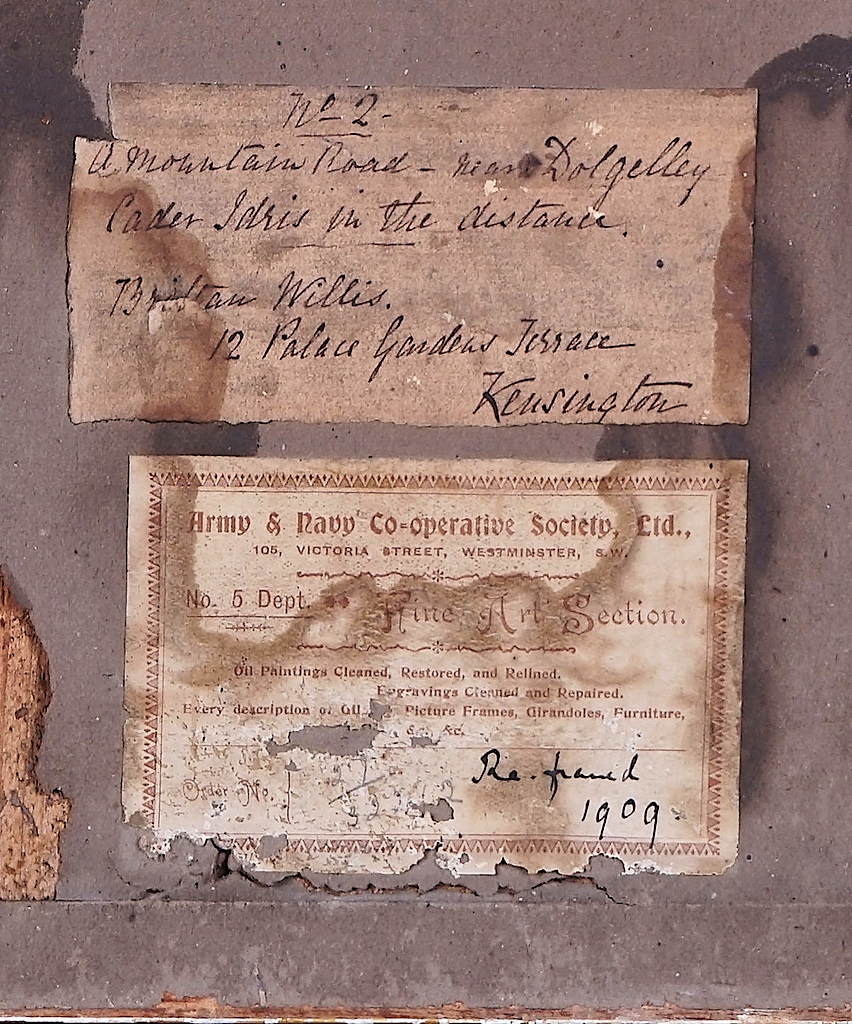 No 2.
A Mountain Road - near Dolgelley
Cader Idris in the distance.
Brittan Willis.
12 Palace Gardens Terrace
Kensington
Army & Navy Co=operative Society, Ltd.,
105, VICTORIA STREET, WESTMINSTER, S.W.
No. 5 Dept.
Fine Art Section.
Oil Paintings Cleaned, Restored, and Relined.
Engravings Cleaned and Repaired.
Every description of Picture Frames, Girandoles, Furniture,
&c.
Re-framed
Order No.
1909.